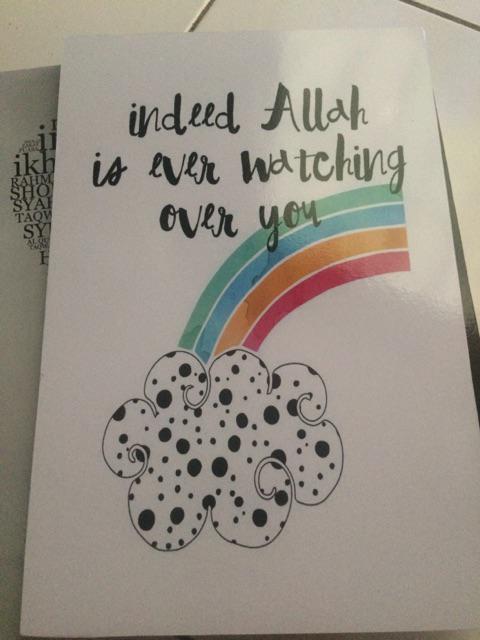 indeed Allah
is ever watching
over you
ikh
RAHMA
SHO
SYA
TAQW
SY